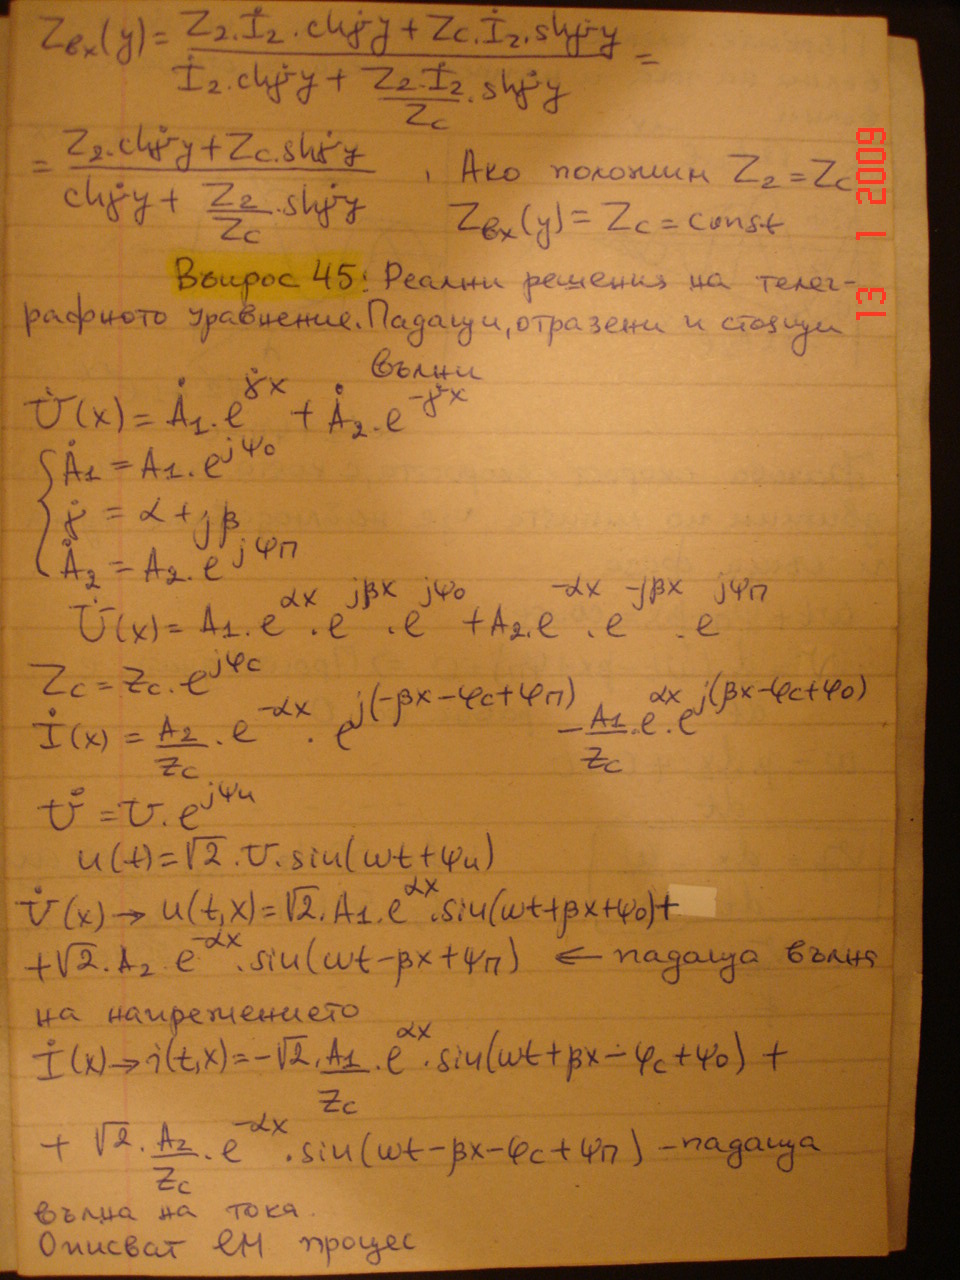 Zвx(y) = Z2.İ2.chγ̇y + Zc.İ2.shγ̇y / İ2.chγ̇y + Z2.İ2/Zc.shγ̇y =
= Z2.chγ̇y + Zc.shγ̇y / chγ̇y + Z2/Zc.shγ̇y , Ако положим Z2 = Zc
Zвx(y) = Zc = const
Въпрос 45: Реални решения на телег-
рафното уравнение. Падащи, отразени и стоящи
вълни
U̇(x) = Ȧ1.e^γ̇x + Ȧ2.e^-γ̇x
Ȧ1 = A1.e^jψ0
γ̇ = α + jβ
Ȧ2 = A2.e^jψп
U̇(x) = A1.e^αx.e^jβx.e^jψ0 + A2.e^-αx.e^-jβx.e^jψп
Zc = zc.e^jφc
İ(x) = A2/zc.e^-αx.e^j(-βx-φc+ψп) - A1/zc.e^αx.e^j(βx-φc+ψ0)
U̇ = U.e^jψu
u(t) = √2.U.sin(ωt+ψu)
U̇(x) → u(t,x) = √2.A1.e^αx.sin(ωt+βx+ψ0) +
+ √2.A2 e^-αx.sin(ωt-βx+ψп) ← падаща вълна
на напрежението
İ(x) → i(t,x) = -√2.A1/zc.e^αx.sin(ωt+βx-φc+ψ0) +
+ √2.A2/zc.e^-αx.sin(ωt-βx-φc+ψп) - падаща
вълна на тока.
Описват ЕМ процес
13 1 2009